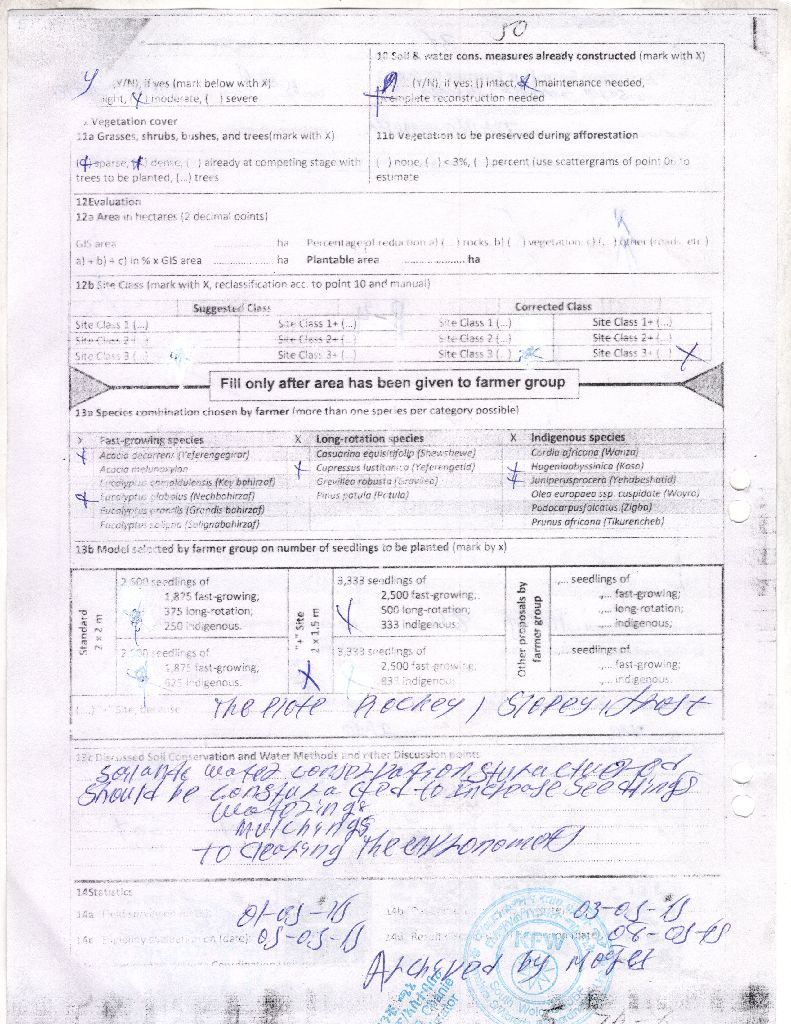 50
10 Soil & water cons. measures already constructed (mark with X)
Y (Y/N), if yes (mark below with X)
(Y/N), if yes: () intact, ( )maintenance needed,
ight, ( ) moderate, ( ) severe
complete reconstruction needed
Vegetation cover
11a Grasses, shrubs, bushes, and trees(mark with X)
11b Vegetation to be preserved during afforestation
( ) sparse, ( ) dense, ( ) already at competing stage with
trees to be planted, (...) trees
( ) none, ( ) < 3%, ( ) percent (use scattergrams of point 06 to
estimate
12Evaluation
12a Area in hectares (2 decimal points)
GIS area ha Percentage of reduction a) (...) rocks, b) ( ) vegetation, c) ( ) other (roads, etc.)
a) + b) + c) in % x GIS area ha Plantable area ha
12b Site Class (mark with X, reclassification acc. to point 10 and manual)
Suggested Class Corrected Class
Site Class 1 (...) Site Class 1+ (...) Site Class 1 (...) Site Class 1+ (...)
Site Class 2 Site Class 2+ (...) Site Class 2 (...) Site Class 2+ (...)
Site Class 3 ( ) Site Class 3+ (...) Site Class 3 ( ) Site Class 3+ ( ) X
Fill only after area has been given to farmer group
13a Species combination chosen by farmer (more than one species per category possible)
X Fast-growing species X Long-rotation species X Indigenous species
X Acacia decurrens (Yeferengegirar) Casuarina equisitifolip (Shewshewe) Cordia africana (Wanza)
Acacia melanoxylon X Cupressus lustitanica (Yeferengetid) X Hageniaabyssinica (Koso)
Eucalyptus camaldulensis (Key bahirzaf) Grevillea robusta (Gravilea) X Juniperusprocera (Yehabeshatid)
X Eucalyptus globolus (Nechbahirzaf) Pinus patula (Patula) Olea europaea ssp. cuspidate (Woyra)
Eucalyptus grandis (Grandis bahirzaf) Podocarpusfalcatus (Zigba)
Eucalyptus saligna (Salignabahirzaf) Prunus africana (Tikurencheb)
13b Model selected by farmer group on number of seedlings to be planted (mark by x)
Standard
2 x 2 m
2,500 seedlings of
1,875 fast-growing,
375 long-rotation;
250 indigenous.
2,500 seedlings of
1,875 fast-growing,
625 indigenous.
"+" Site
2 x 1,5 m
X
3,333 seedlings of
2,500 fast-growing;
X 500 long-rotation;
333 indigenous;
3,333 seedlings of
2,500 fast-growing;
833 indigenous.
Other proposals by
farmer group
,... seedlings of
,... fast-growing;
,... long-rotation;
,... indigenous;
,... seedlings of
,... fast-growing;
,... indigenous.
(...) Site, because The Plote Rockey, Slopey, frost
13c Discussed Soil Conservation and Water Methods and other Discussion points
should be consturacted to increase seedlings
waterings
mulchings
to clearing the environments
14Statistics
14a
14b 03-05-15
14c 14d
Archived by Moges
KFW